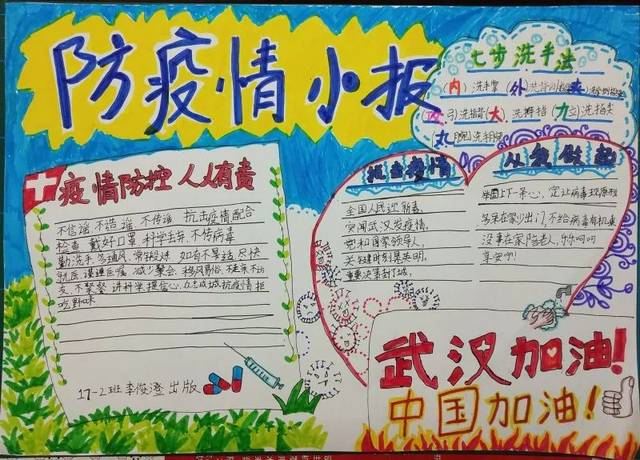 防疫情小报
七步洗手法
(内)洗手掌 (外)
弓)洗指背(大)洗拇指(力立)洗指尖
丸腕)洗
疫情防控 人人有责
不信谣 不造谣 不传谣 抗击疫情配合
检查 戴好口罩 科学 不传病毒
勤洗手 多通风 常 如有不适 尽快
就医 谨遵医嘱 减少聚会 移风易俗
不聚餐 讲科学 提信心 众志成城抗疫情 拒
吃野味
17-2班 李俊澄 出版
抗击疫情
全国人民迎新春,
突闻武汉发疫情,
党和国家领导人,
关键时刻显英明,
重要决策封了城,
从我做起
举国上下一条心, 定让病毒现原形
多呆在家少出门 不给病毒有机乘
没事在家陪老人,
享安宁!
武汉加油!
中国加油!